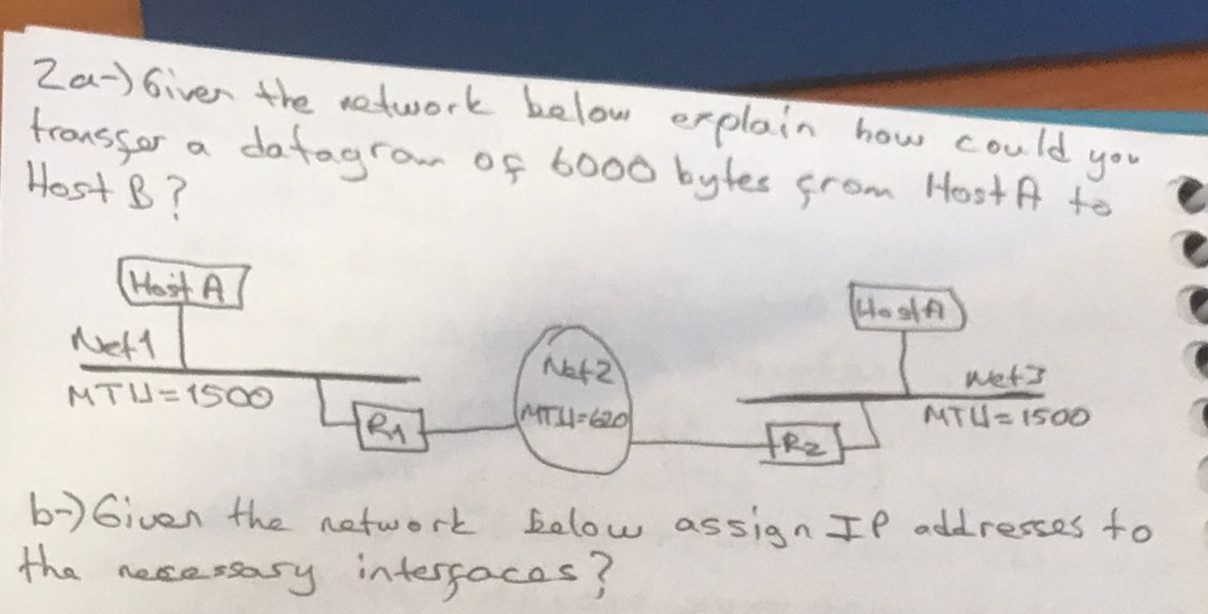 2a-) Given the network below explain how could you
transfer a datagram of 6000 bytes from Host A to
Host B?
Host A
Host A
Net1
Net2
Net3
MTU=1500
MTU=620
MTU=1500
R1
R2
b-) Given the network below assign IP addresses to
the necessary interfaces?